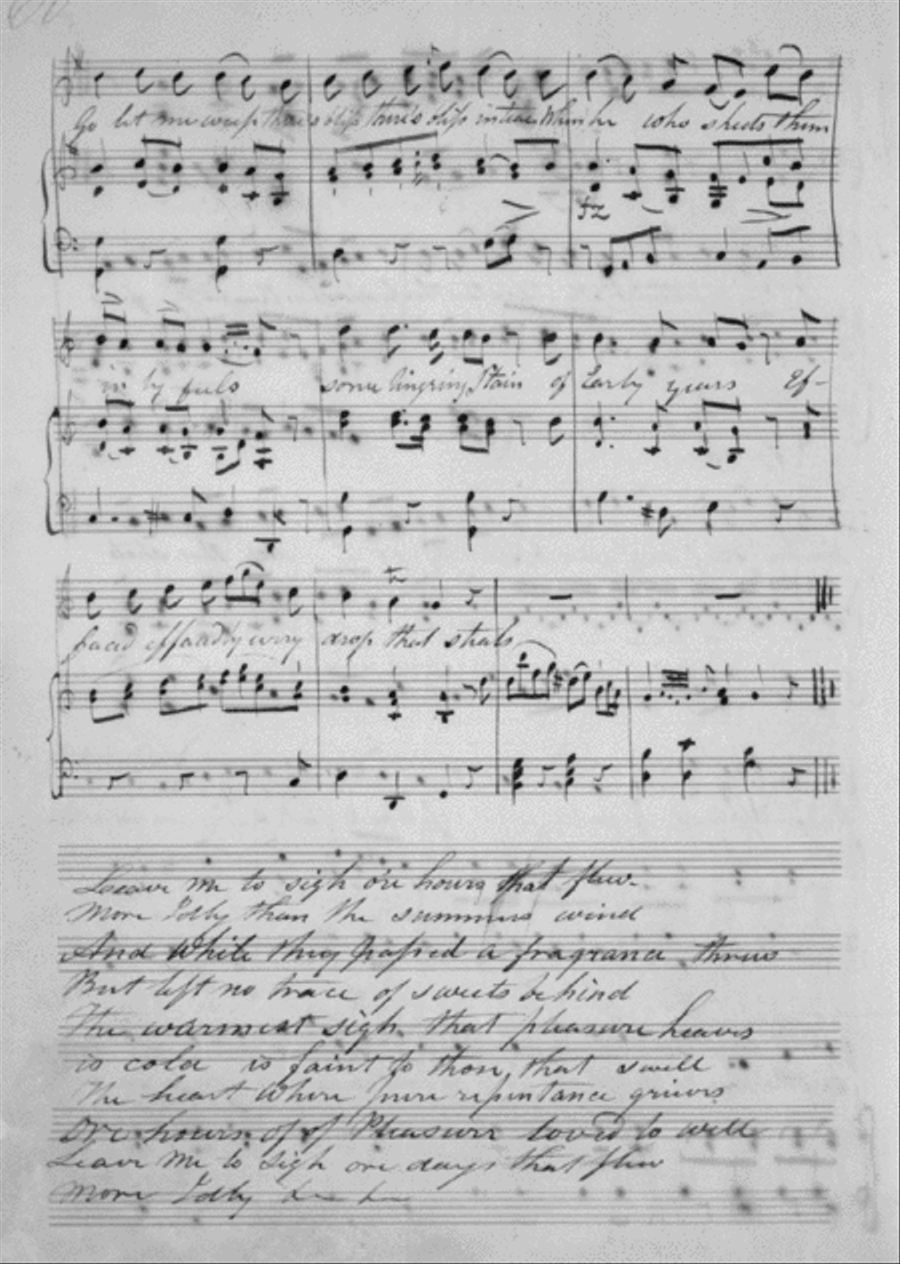 Go let me weep there's bliss there's bliss in tears When he who sheds them
in ly feels some lingring Stain of Early years Ef-
faced effaced by every drop that steals
Leave me to sigh o're hours that flew
More Idly than the summers wind
And While they passed a fragrance threw
But left no trace of sweets behind
The warmest sigh that pleasure heaves
is cold is faint to those that swell
The heart Where pure repentance grieves
Ore hours of of Pleasure loved to well
Leave Me to Sigh ore days that flew
More Idly